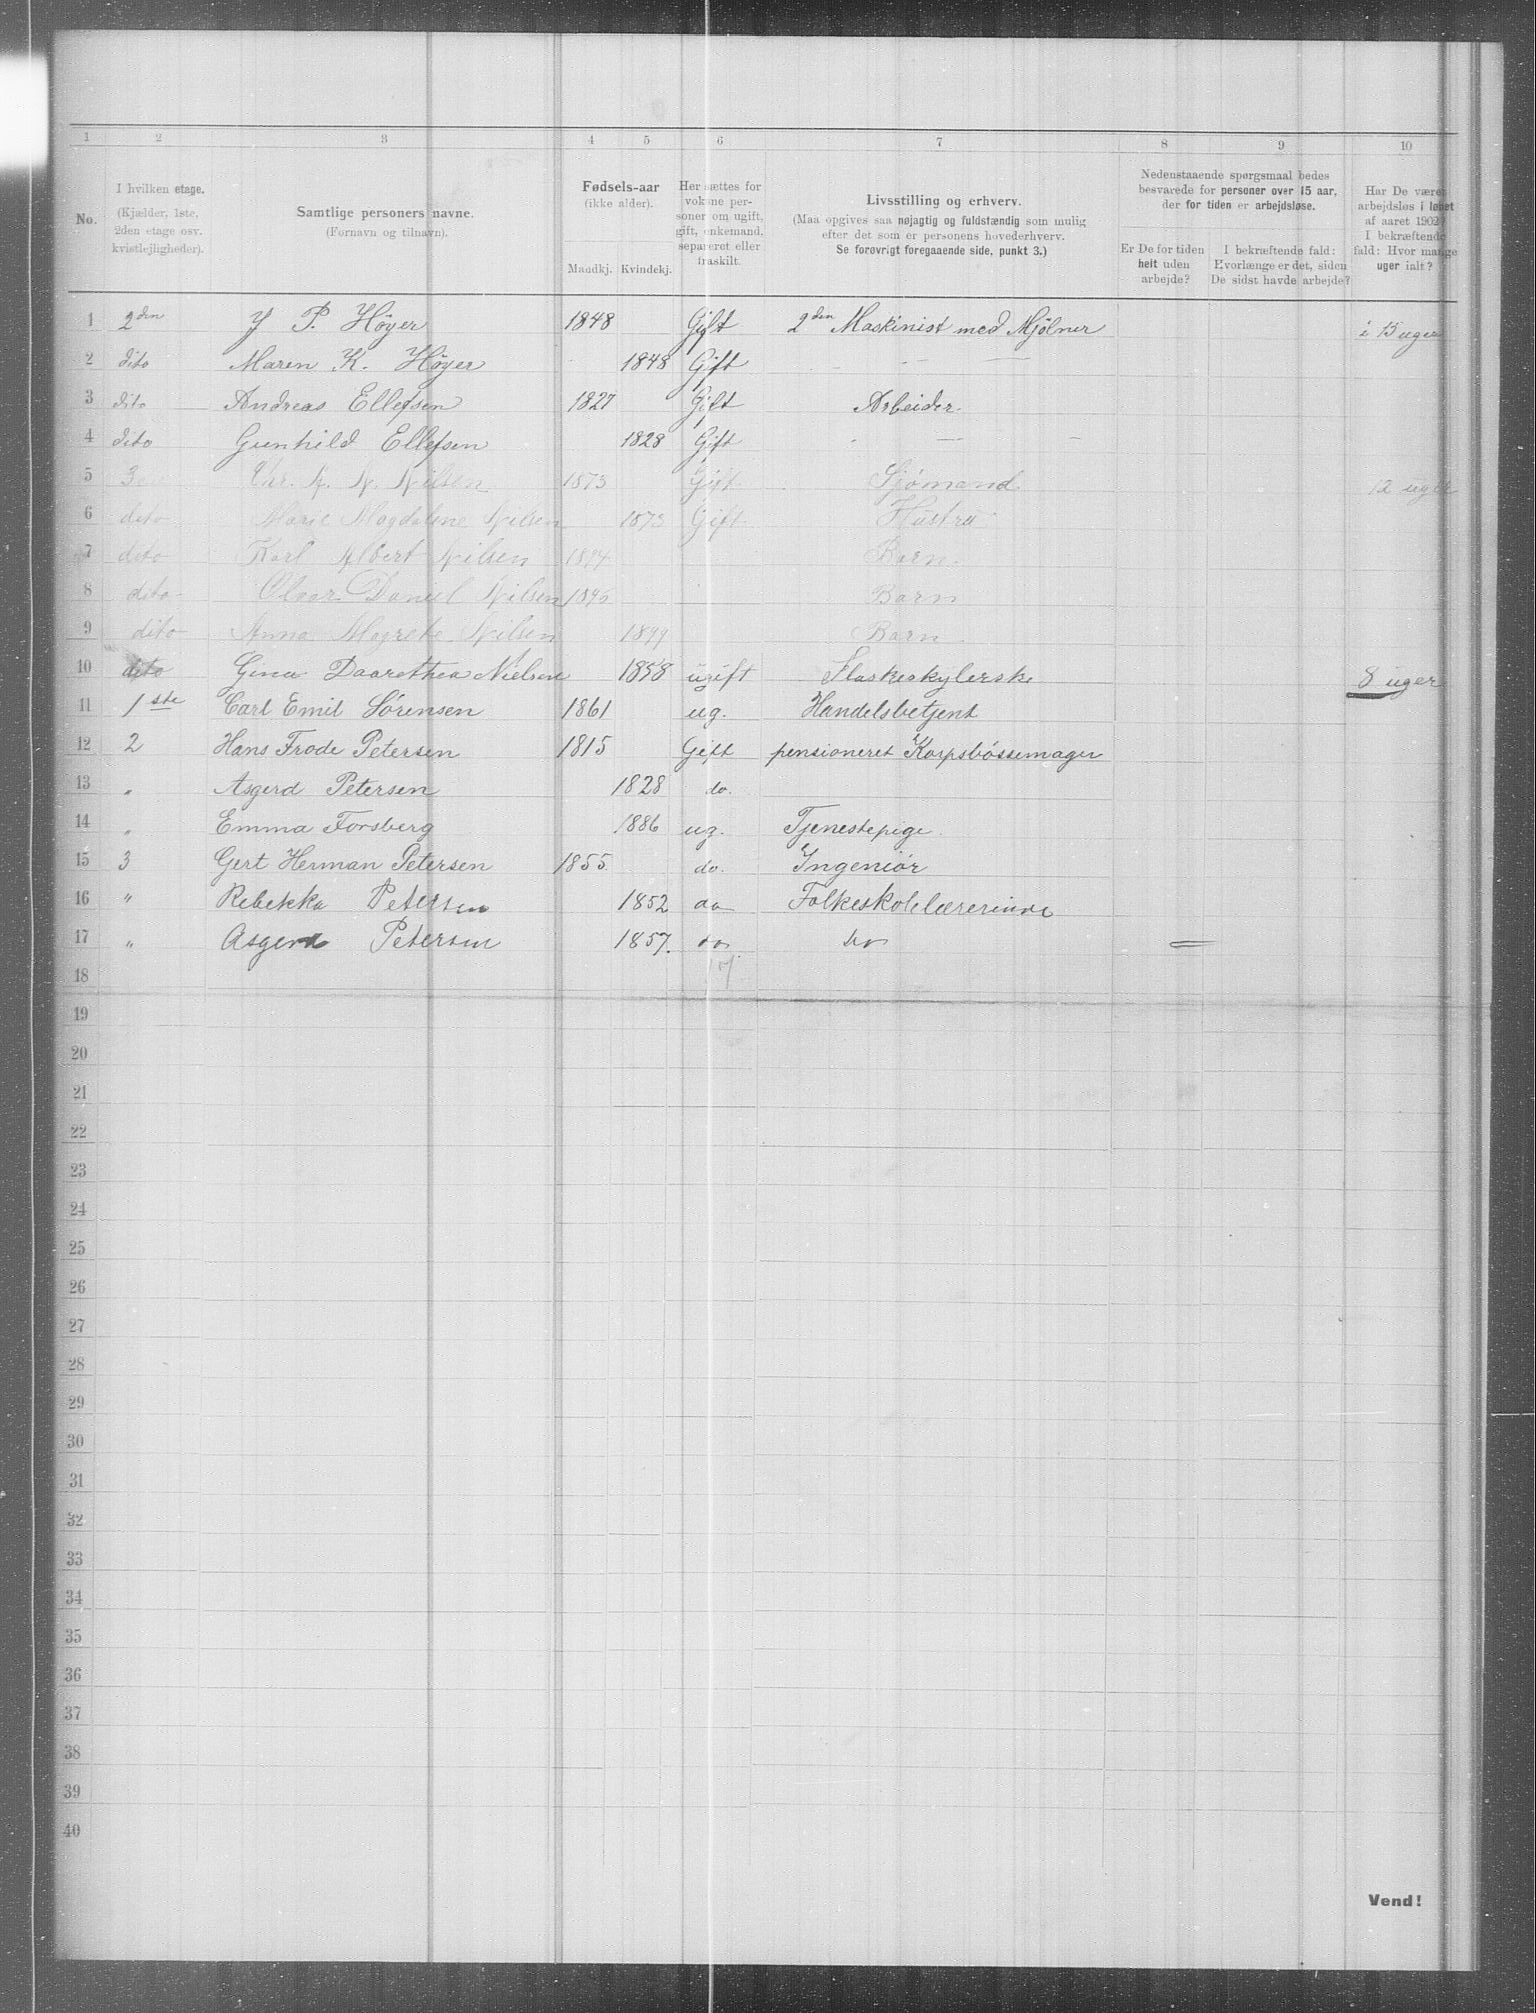 1 2 3 4 5 6 7 8 9 10
No.
I hvilken etage. (Kjælder, 1ste, 2den etage osv. kvistlejligheder).
Samtlige personers navne. (Fornavn og tilnavn).
Fødsels-aar (ikke alder). Mandkj. Kvindekj.
Her sættes for voksne personer om ugift, gift, enkemand, separeret eller fraskilt.
Livsstilling og erhverv. (Maa opgives saa nøjagtig og fuldstændig som mulig efter det som er personens hovederhverv. Se forøvrigt foregaaende side, punkt 3.)
Nedenstaaende spørgsmaal bedes besvarede for personer over 15 aar, der for tiden er arbejdsløse.
Er De for tiden helt uden arbejde?
I bekræftende fald: Hvorlænge er det, siden De sidst havde arbejde?
Har De været arbejdsløs i løbet af aaret 1902? I bekræftende fald: Hvor mange uger ialt?
1 2den J P. Höyer 1848 Gift 2den Maskinist med Mjølner i 15 uger
2 dito Maren K. Höyer 1848 Gift — —
3 dito Andreas Ellefsen 1827 Gift Arbeider
4 dito Gunhild Ellefsen 1828 Gift - — -
5 Chr. A. N. Nilsen 1873 Gift Sjømand 12 uger
6 dito Marie Magdalene Nilsen 1873 Gift Hustru
7 dito Karl Albert Nilsen 1894 Barn.
8 dito Daniel Nilsen 1896 Barn
9 dito Anna Magrete Nilsen 1899 Barn
10 dito Gina Daarethea Nielsen 1858 ugift Flaskeskylerske 8 uger
11 1ste Carl Emil Sørensen 1861 ug. Handelsbetjent
12 2 Hans Frode Petersen 1815 Gift pensioneret Korpsbøssemager
13 " Asgerd Petersen 1828 do.
14 " Emma Forsberg 1886 ug. Tjenestepige.
15 3 Gert Herman Petersen 1855 do. Ingeniør
16 " Rebekka Petersen 1852 do Folkeskolelærerinde
17 " Asgerd Petersen 1857. do do =
18 17
19
20
21
22
23
24
25
26
27
28
29
30
31
32
33
34
35
36
37
38
39
40
Vend!